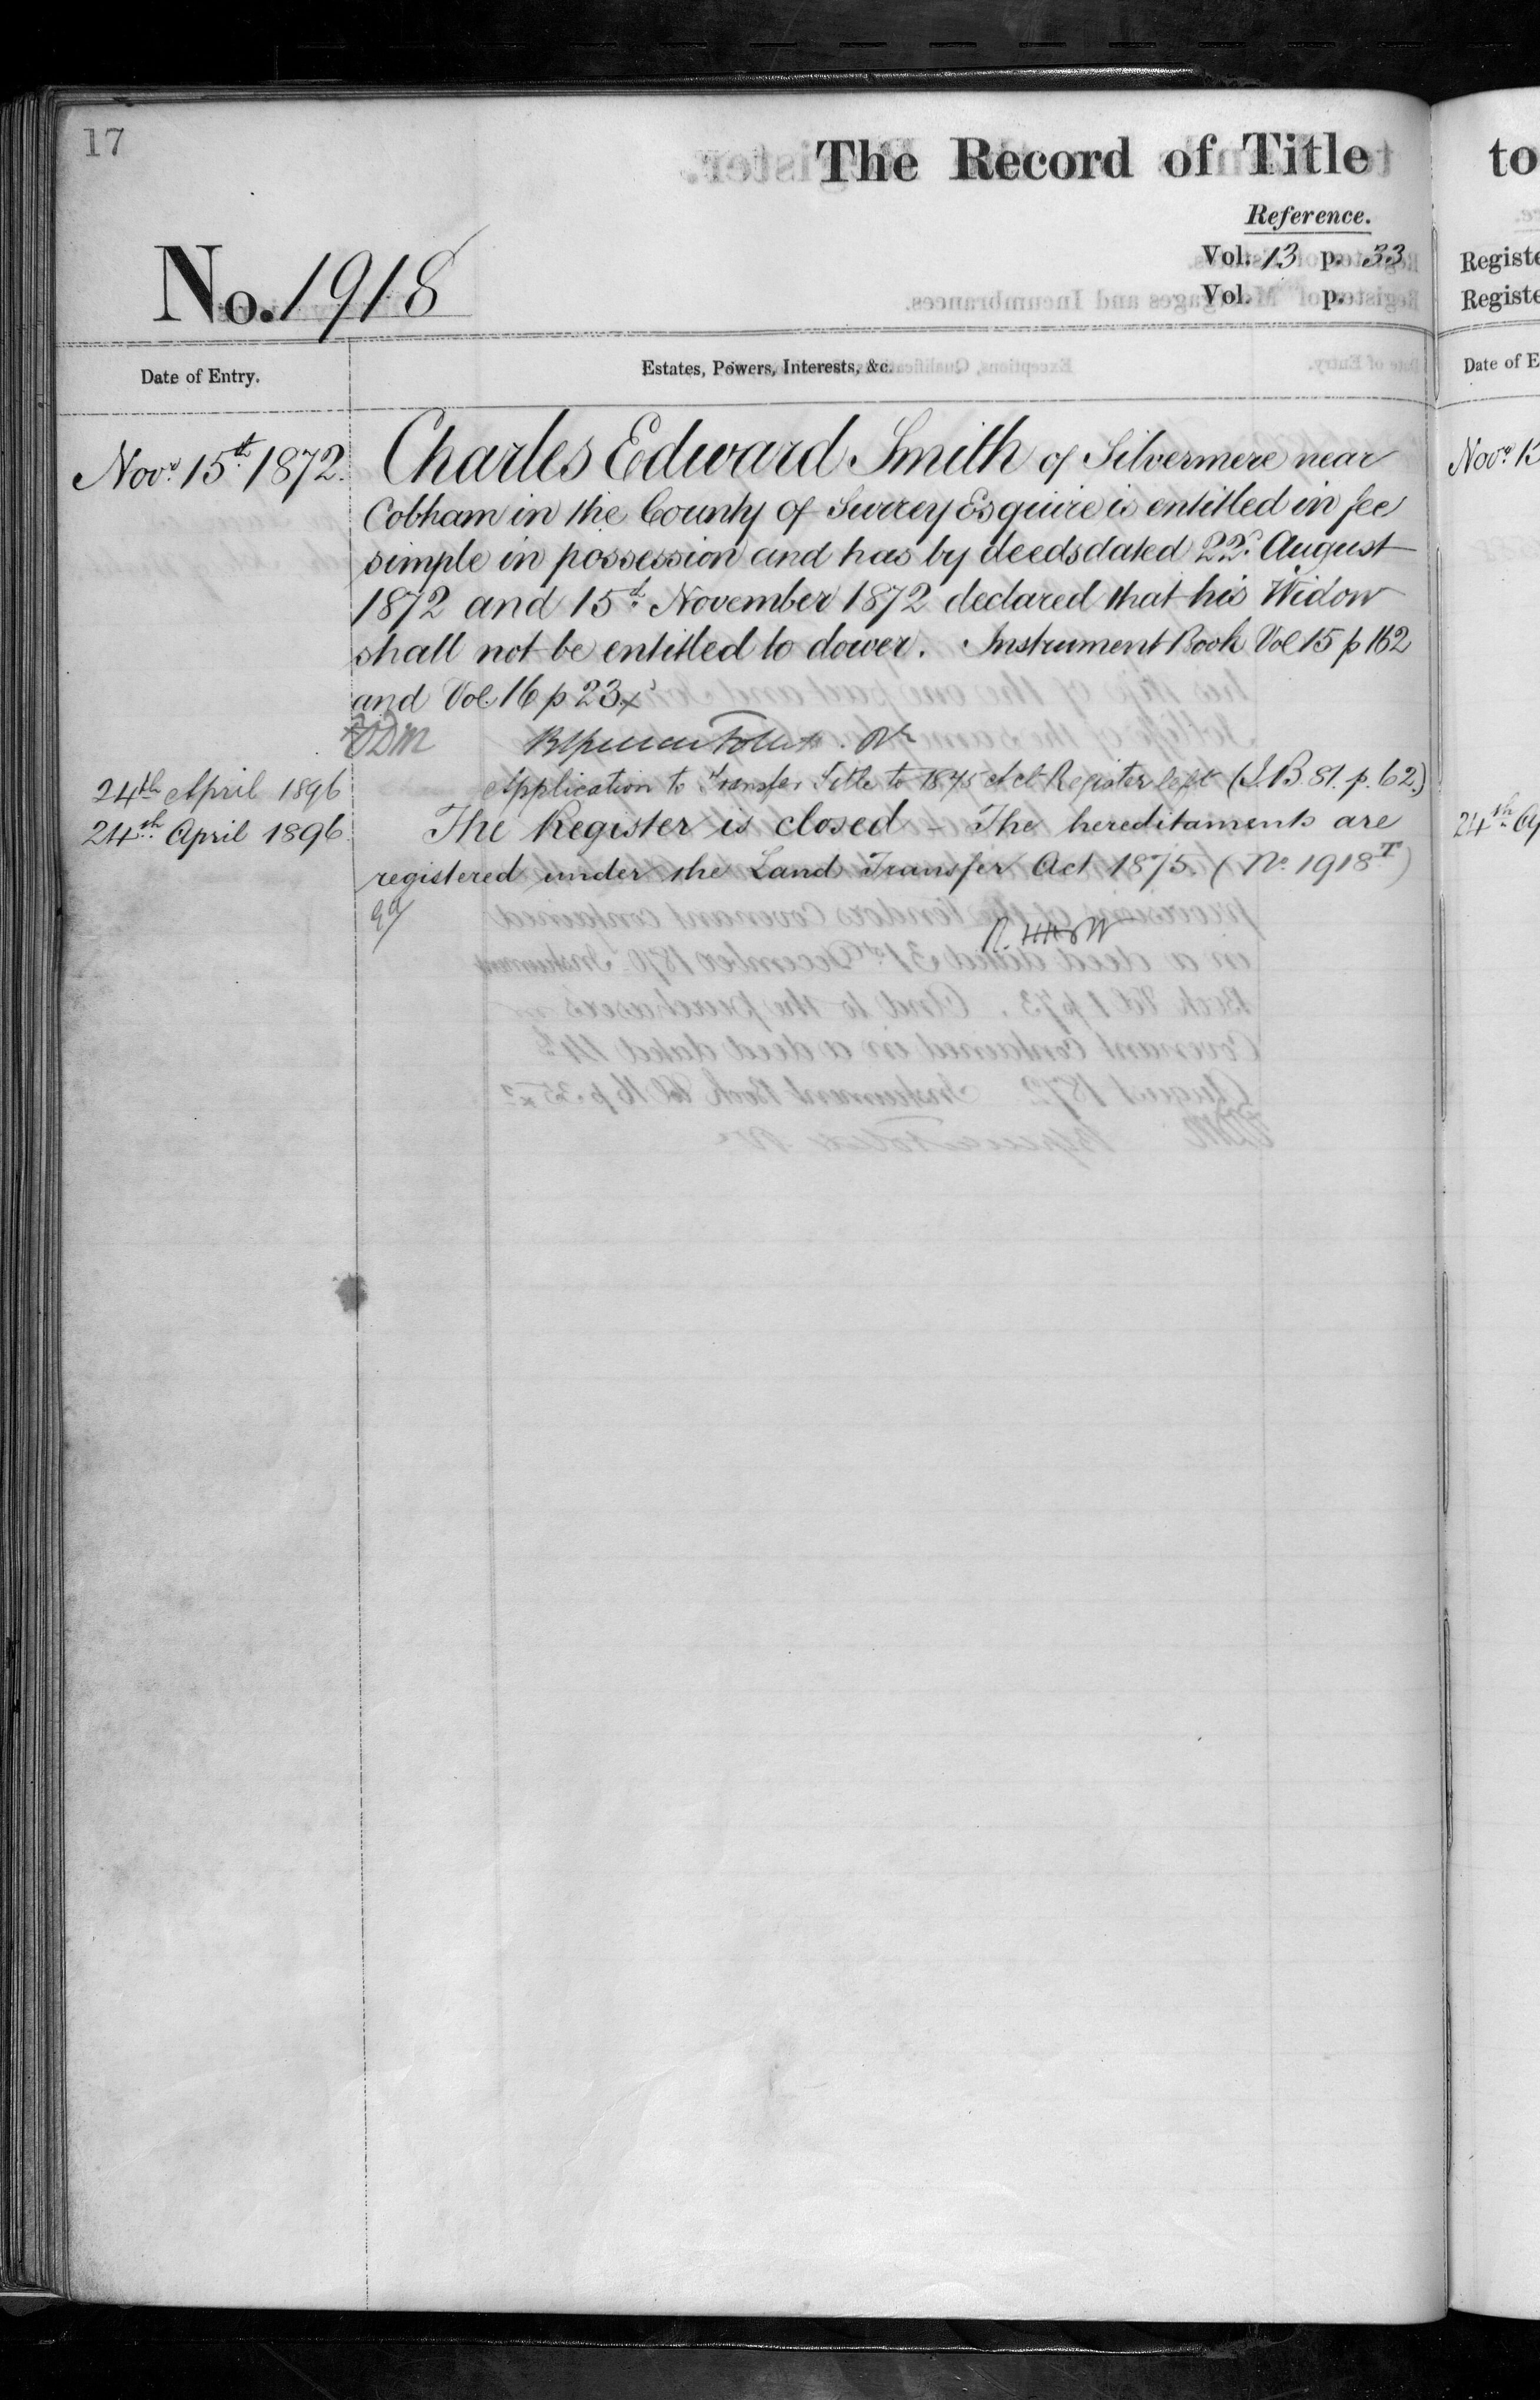 17
The Record of Title
Reference.
Vol. 13 p. 33
Vol. p.
No. 1918
Date of Entry.
Estates, Powers, Interests, &c.
Novr. 15th 1872.
Charles Edward Smith of Silvermere near
Cobham in the County of Surrey Esquire is entitled in fee
simple in possession and has by deeds dated 22d. August
1872 and 15th November 1872 declared that his Widow
shall not be entitled to dower. Instrument Book Vol 15 p 162
and Vol. 16 p 23
24th April 1896
Application to transfer Title to 1875 Act Register left (I.B 81. p. 62.)
24th April 1896
The Register is closed - The hereditaments are
registered under the Land Transfer Act 1875. (No. 1918T)
to
Registe
Registe
Date of E
Novr. 15
24th Ap